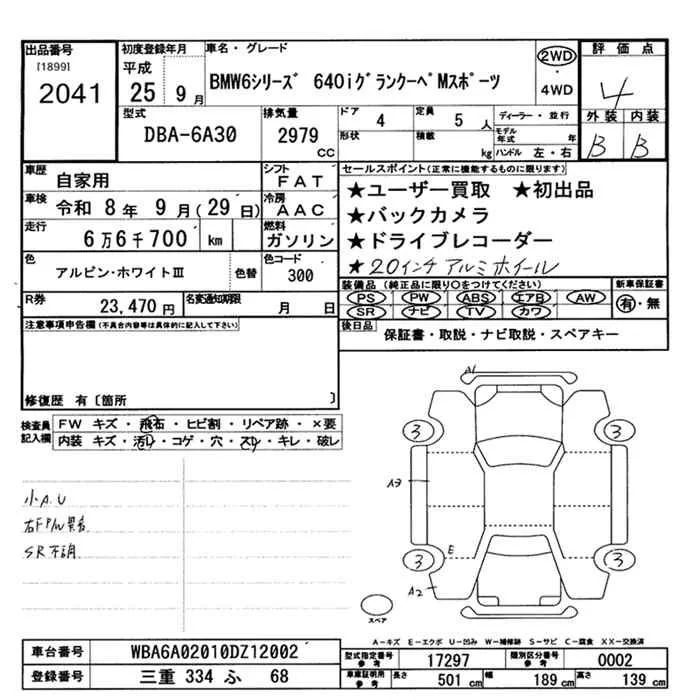 出品番号
[1899]
2041
初度登録年月
平成
25 9 月
車名・グレード
BMW6シリーズ 640iグランクーペMスポーツ
2WD
・
4WD
評価点
4
外装 内装
B B
型式
DBA-6A30
排気量
2979
CC
ドア
4
定員
5 人
形状
積載
kg
ディーラー・並行
モデル年式 年
ハンドル 左・右
車歴
自家用
シフト
FAT
車検
令和 8 年 9 月 (29 日)
冷房
AAC
走行
6万6千700 km
燃料
ガソリン
色
アルピン・ホワイトⅢ
色替
色コード
300
R券
23,470 円
名変通知期限
月 日
セールスポイント(正常に機能するものに限り)
★ユーザー買取 ★初出品
★バックカメラ
★ドライブレコーダー
★20インチアルミホイール
装備品(純正品に限り○をつけてください)
PS PW ABS エアB AW
SR ナビ TV カワ
新車保証書
有・無
後日品
保証書・取説・ナビ取説・スペアキー
注意事項申告欄(不具合内容等は具体的に記入して下さい)
修復歴 有〔箇所 〕
検査員記入欄
FW キズ・飛石・ヒビ割・リペア跡・×要
内装 キズ・汚レ・コゲ・穴・スレ・キレ・破レ
小A.U
SR不調
A1
3 3
A3
E
3 3
A2
スペア
A−キズ E−エクボ U−凹み W−補修跡 S−サビ C−腐食 XX−交換済
車台番号
WBA6A02010DZ12002
登録番号
三重 334 ふ 68
型式指定番号
参考
17297
類別区分番号
参考
0002
車庫証明用
参考
長さ
501 cm
幅
189 cm
高さ
139 cm